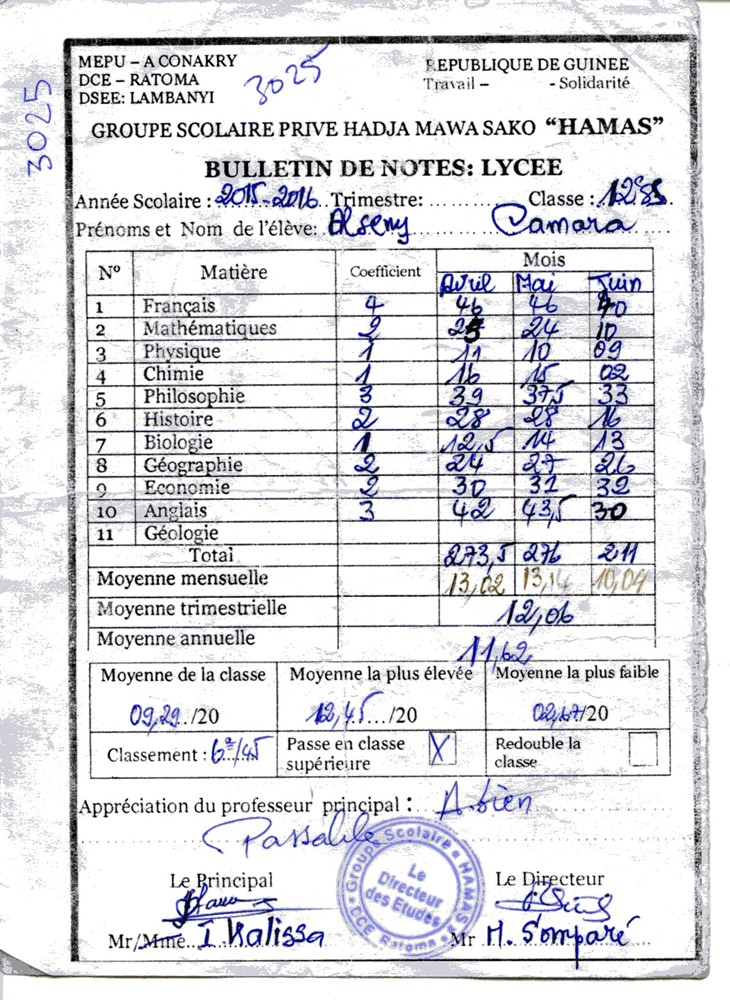 MEPU – A CONAKRY
DCE – RATOMA
DSEE: LAMBANYI
3025
3025
REPUBLIQUE DE GUINEE
Travail – - Solidarité
GROUPE SCOLAIRE PRIVE HADJA MAWA SAKO "HAMAS"
BULLETIN DE NOTES: LYCEE
Année Scolaire : 2015-2016 Trimestre: ............ Classe : 12e SS
Prénoms et Nom de l'élève: Alseny Camara
N° Matière Coefficient Mois
Avril Mai Juin
1 Français 4 46 46 40
2 Mathématiques 2 25 24 10
3 Physique 1 11 10 09
4 Chimie 1 16 15 02
5 Philosophie 3 39 37,5 33
6 Histoire 2 28 28 16
7 Biologie 1 12,5 14 13
8 Géographie 2 24 27 26
9 Economie 2 30 31 32
10 Anglais 3 42 43,5 30
11 Géologie
Total 273,5 276 211
Moyenne mensuelle 13,02 13,14 10,04
Moyenne trimestrielle 12,06
Moyenne annuelle 11,62
Moyenne de la classe Moyenne la plus élevée Moyenne la plus faible
09,29../20 12,45.../20 /20
Classement : 6e/45 Passe en classe supérieure X Redouble la classe
Appréciation du professeur principal : A. bien
Passable
Groupe Scolaire « HAMAS »
Le Directeur des Etudes
DCE Ratoma
Le Principal Le Directeur
Mr/Mme I Kalissa Mr M. Somparé